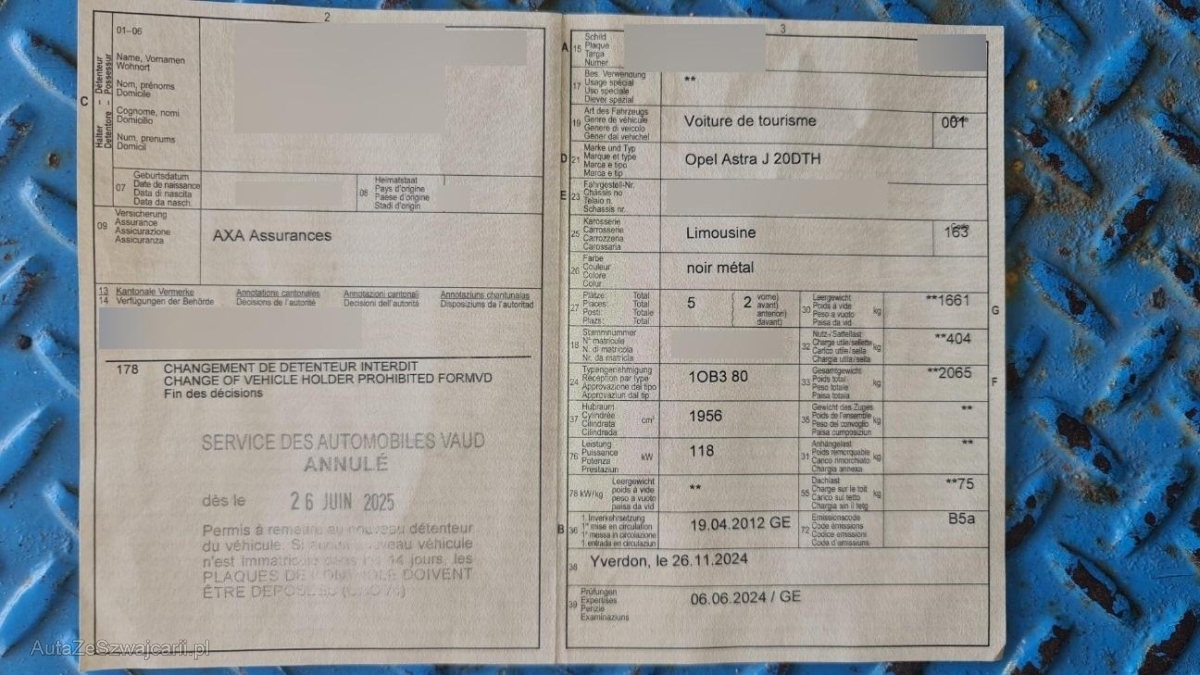 2
01-06
C
Halter - Détenteur
Detentore - Possessur
Name, Vornamen
Wohnort
Nom, prénoms
Domicile
Cognome, nomi
Domicilio
Num, prenums
Domicil
07
Geburtsdatum
Date de naissance
Data di nascita
Data da nasch.
08
Heimatstaat
Pays d'origine
Paese d'origine
Stadi d'origin
09
Versicherung
Assurance
Assicurazione
Assicuranza
AXA Assurances
13 Kantonale Vermerke Annotations cantonales Annotazioni cantonali Annotaziuns chantunalas
14 Verfügungen der Behörde Décisions de l'autorité Decisioni dell'autorità Disposiziuns da l'autoritad
178 CHANGEMENT DE DETENTEUR INTERDIT
CHANGE OF VEHICLE HOLDER PROHIBITED FORMVD
Fin des décisions
SERVICE DES AUTOMOBILES VAUD
ANNULÉ
dès le 26 JUIN 2025
Permis à remettre au nouveau détenteur
du véhicule. Si aucun nouveau véhicule
n'est immatriculé dans les 14 jours, les
PLAQUES DE CONTRÔLE DOIVENT
ÊTRE DÉPOSÉES
3
A 15
Schild
Plaque
Targa
Numer
17
Bes. Verwendung
Usage spécial
Uso speciale
Diever spezial
**
19
Art des Fahrzeugs
Genre de véhicule
Genere di veicolo
Gener dal vehichel
Voiture de tourisme
001
D 21
Marke und Typ
Marque et type
Marca e tipo
Marca e tip
Opel Astra J 20DTH
E 23
Fahrgestell-Nr.
Châssis no
Telaio n.
Schassis nr.
25
Karosserie
Carrosserie
Carrozzeria
Carossaria
Limousine
Code
163
26
Farbe
Couleur
Colore
Colur
noir métal
27
Plätze: Total
Places: Total
Posti: Totale
Plazs: Total
5
2
vorne)
avant)
anteriori)
davant)
30
Leergewicht
Poids à vide
Peso a vuoto
Paisa da vid
kg
**1661
G
18
Stammnummer
N° matricule
N. di matricola
Nr. da matricla
32
Nutz-/Sattellast
Charge utile/sellette
Carico utile/sella
Chargia utila/sella
kg
**404
24
Typengenehmigung
Réception par type
Approvazione del tipo
Approvaziun dal tip
1OB3 80
33
Gesamtgewicht
Poids total
Peso totale
Paisa totala
kg
**2065
F
37
Hubraum
Cylindrée
Cilindrata
Cilindrada
cm³
1956
35
Gewicht des Zuges
Poids de l'ensemble
Peso del convoglio
Paisa cumposiziun
kg
**
76
Leistung
Puissance
Potenza
Prestaziun
kW
118
31
Anhängelast
Poids remorquable
Carico rimorchiato
Chargia annexa
kg
**
78 kW/kg
Leergewicht
poids à vide
peso a vuoto
paisa da vid
**
55
Dachlast
Charge sur le toit
Carico sul tetto
Chargia sin il tetg
kg
**75
B 36
1. Inverkehrsetzung
1re mise en circulation
1a messa in circolazione
1. entrada en circulaziun
19.04.2012 GE
72
Emissionscode
Code émissions
Codice emissioni
Code d'emissiuns
B5a
38
Yverdon, le 26.11.2024
39
Prüfungen
Expertises
Perizie
Examinaziuns
06.06.2024 / GE
AutaZeSzwajcarii.pl